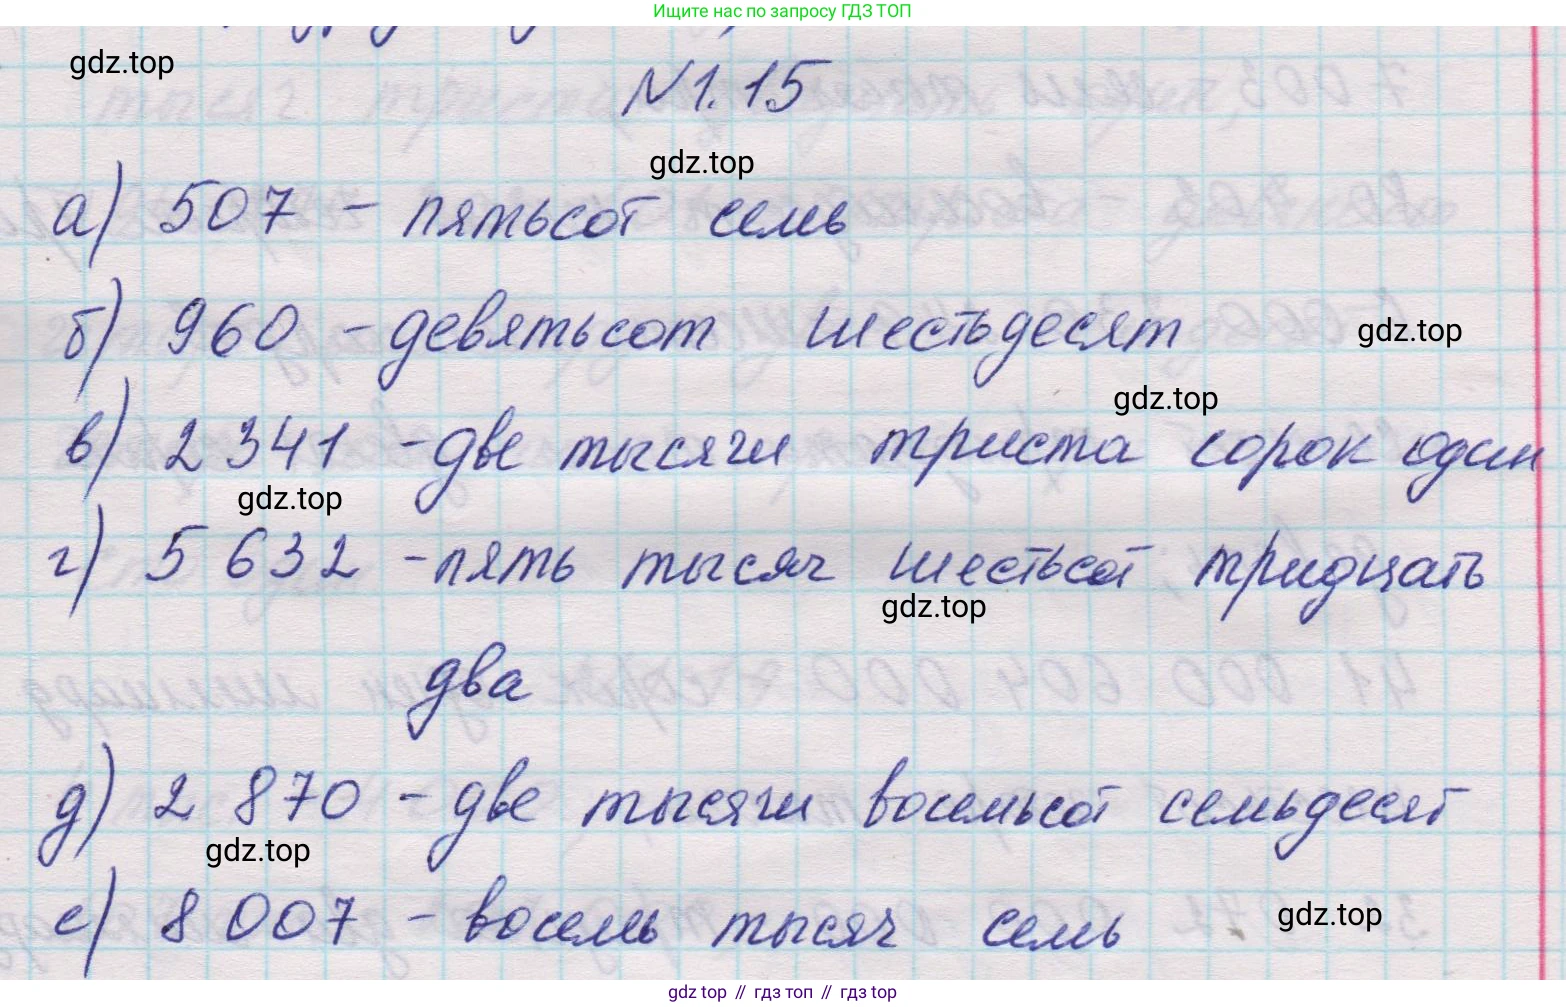 Ищите нас по запросу ГДЗ ТОП
gdz.top
№1.15
gdz.top
а) 507 - пятьсот семь
б) 960 - девятьсот шестьдесят
gdz.top
gdz.top
в) 2 341 - две тысячи триста сорок один
gdz.top
г) 5 632 - пять тысяч шестьсот тридцать
gdz.top
два
д) 2 870 - две тысячи восемьсот семьдесят
gdz.top
е) 8 007 - восемь тысяч семь
gdz.top
gdz top // гдз топ // гдз top